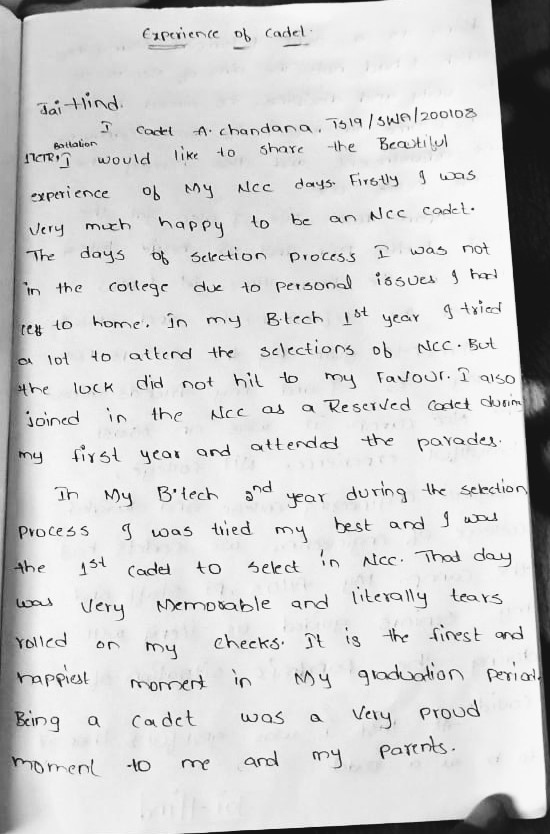 Experience of Cadet.
Jai Hind.
I Cadet A. chandana, TS19/SWA/200108
Battalion
I would like to share the Beautiful
experience of My Ncc days. Firstly I was
Very much happy to be an Ncc cadet.
The days of selection process I was not
in the college due to personal issues I had
to home. In my B.tech 1st year I tried
a lot to attend the selections of Ncc. But
the luck did not hit to my Favour. I also
joined in the Ncc as a Reserved Cadet during
my first year and attended the parades.
In My B'tech 2nd year during the selection
process I was tried my best and I was
the 1st Cadet to select in Ncc. That day
was Very Memorable and literally tears
rolled on my cheeks. It is the finest and
happiest moment in My graduation Period.
Being a Cadet was a Very Proud
moment to me and my Parents.